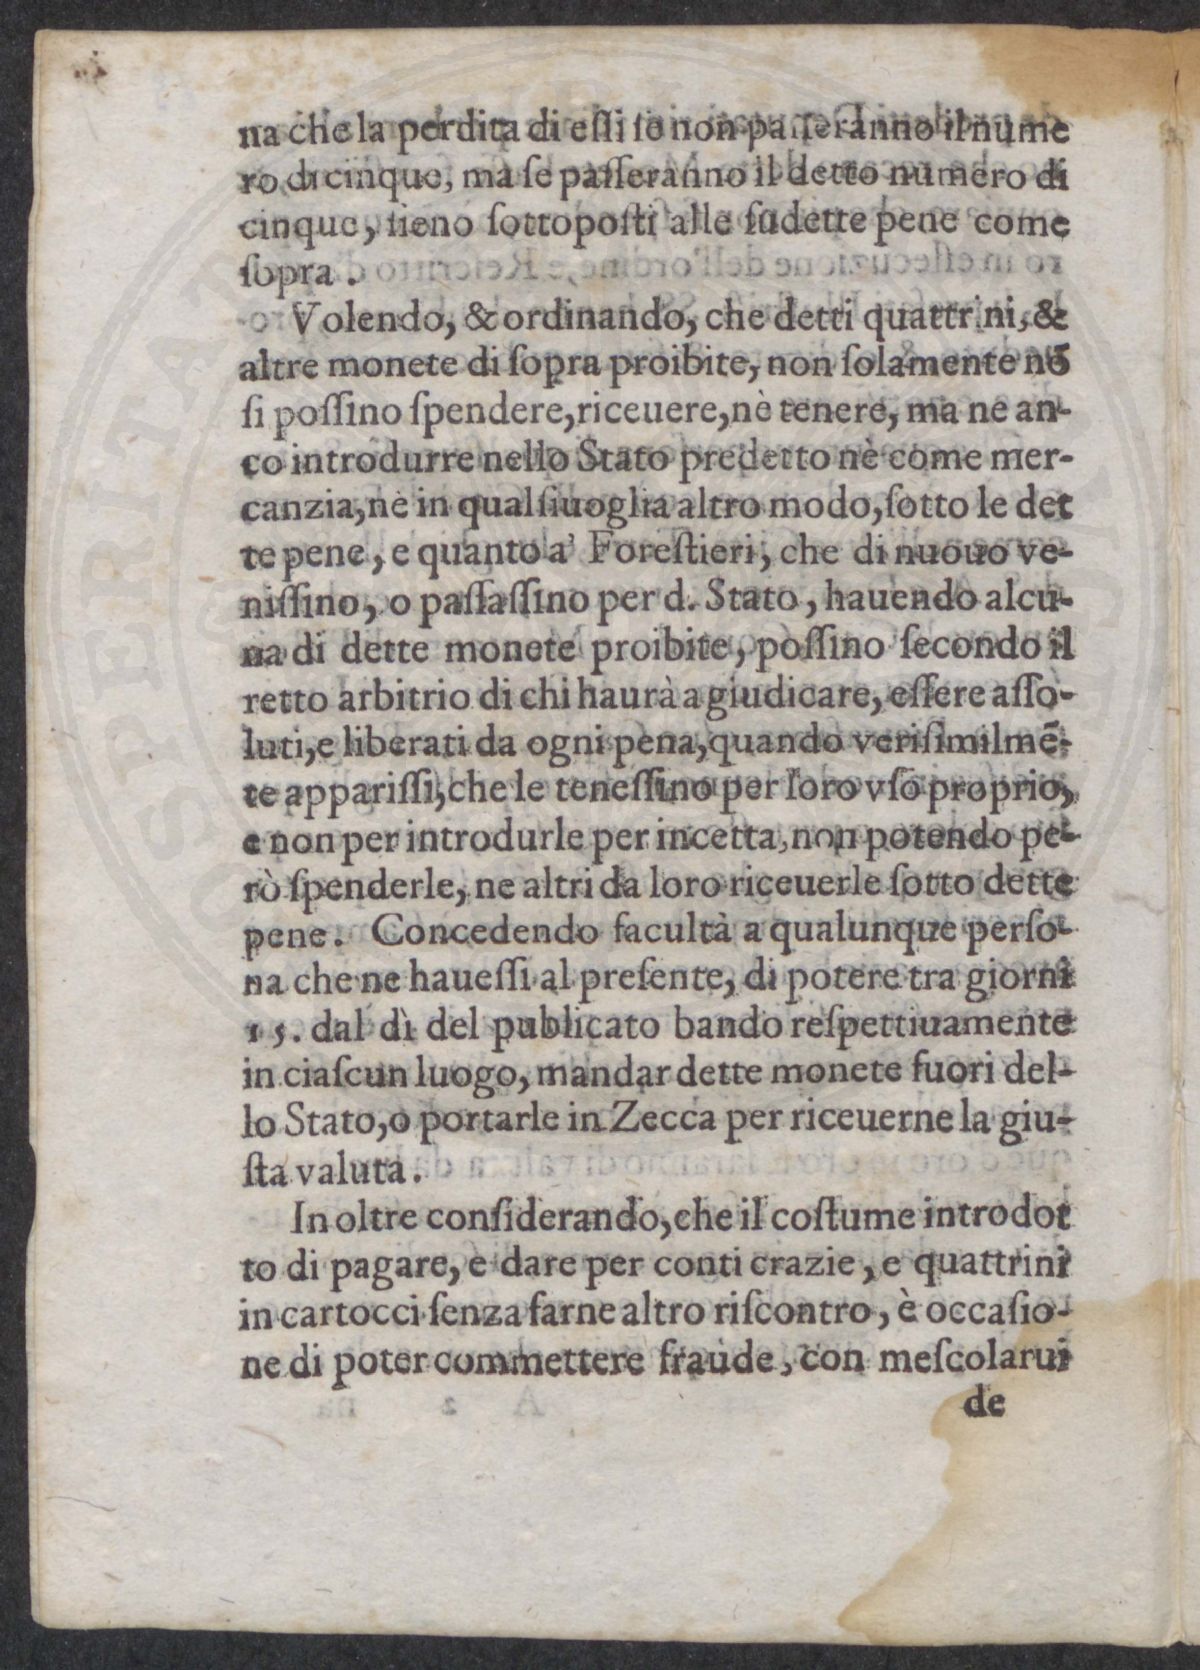 na che la perdita di eſſi ſe non paſſeranno il nume
ro di cinque, ma ſe paſſeranno il detto numero di
cinque, ſieno ſottopoſti alle ſudette pene come
ſopra.
Volendo, & ordinando, che detti quattrini, &
altre monete di ſopra proibite, non ſolamente nō
ſi poſſino ſpendere, riceuere, nè tenere, ma ne an-
co introdurre nello Stato predetto nè come mer-
canzia, nè in qualſiuoglia altro modo, ſotto le det
te pene, e quanto a' Foreſtieri, che di nuouo ve-
niſſino, o paſſaſſino per d. Stato, hauendo alcu-
na di dette monete proibite, poſſino ſecondo il
retto arbitrio di chi haurà a giudicare, eſſere aſſo-
luti, e liberati da ogni pena, quando veriſimilmē-
te appariſſi, che le teneſſino per loro vſo proprio,
e non per introdurle per incetta, non potendo pe-
rò ſpenderle, ne altri da loro riceuerle ſotto dette
pene. Concedendo facultà a qualunque perſo-
na che ne haueſſi al preſente, di potere tra giorni
15. dal dì del publicato bando reſpettiuamente
in ciaſcun luogo, mandar dette monete fuori del-
lo Stato, o portarle in Zecca per riceuerne la giu-
ſta valuta.
In oltre conſiderando, che il coſtume introdot
to di pagare, e dare per conti crazie, e quattrini
in cartocci ſenza farne altro riſcontro, è occaſio-
ne di poter commettere fraude, con meſcolarui
de